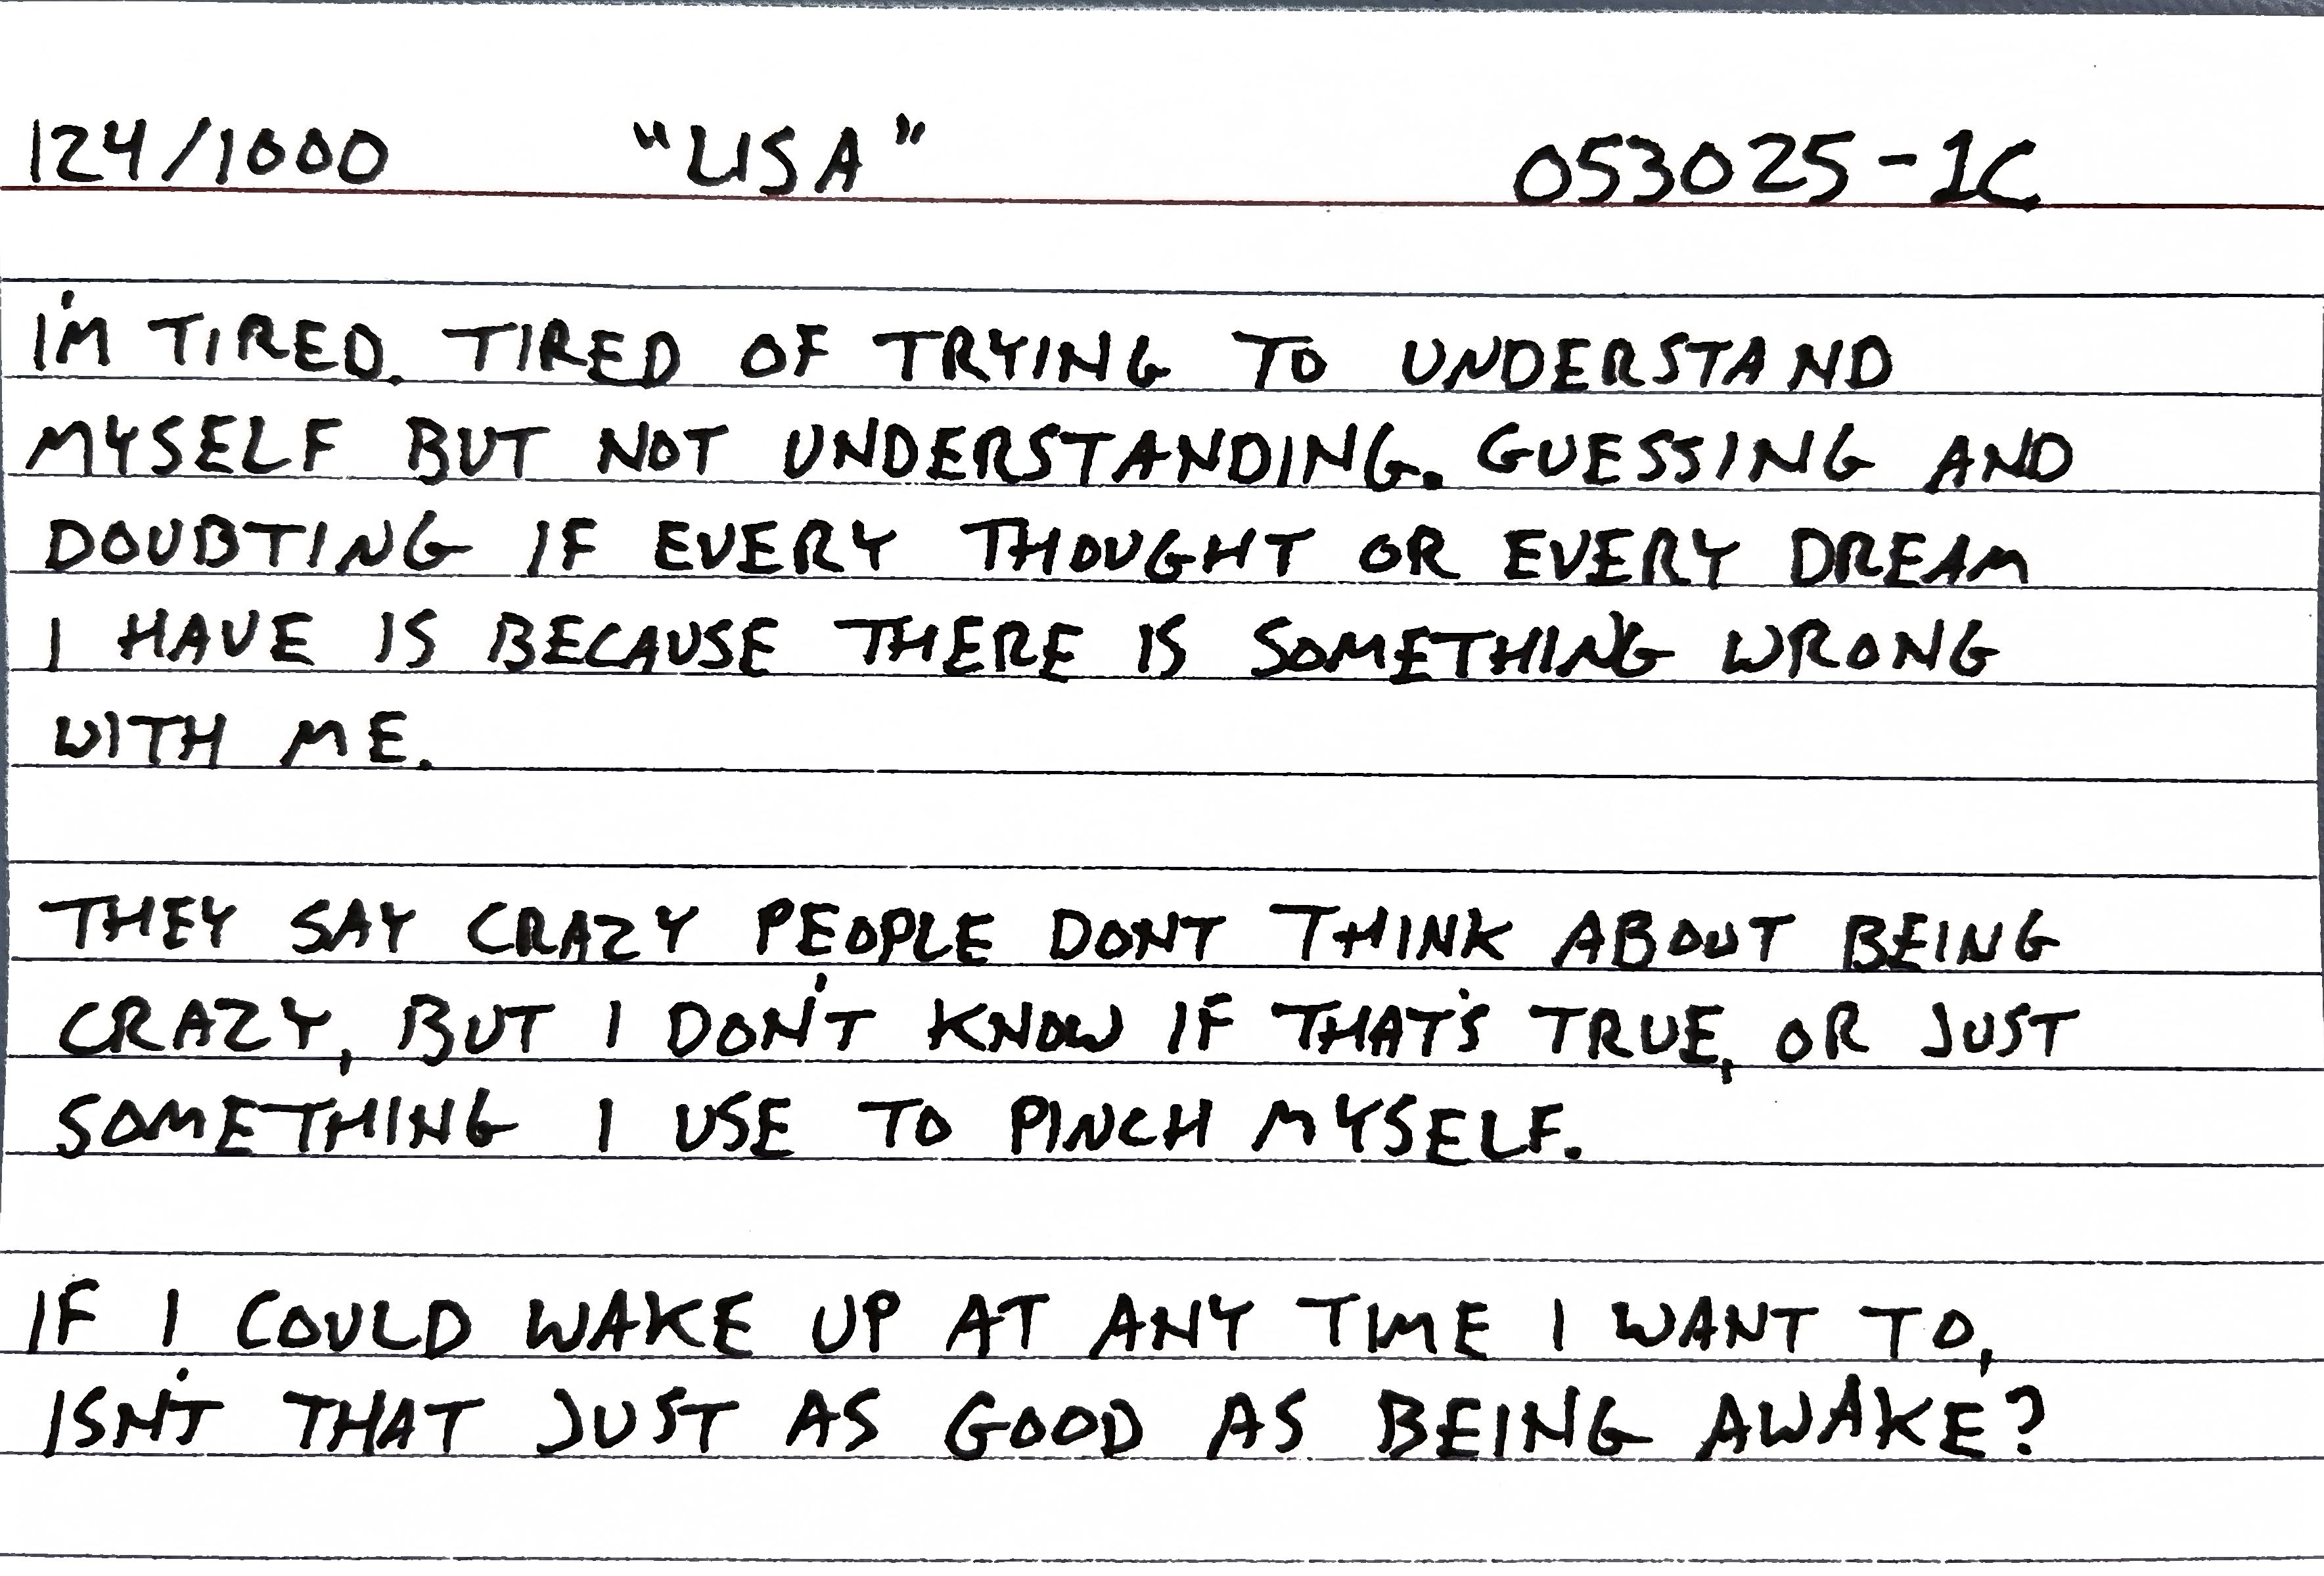 124/1000 "USA" 053025-1C
I'M TIRED. TIRED OF TRYING TO UNDERSTAND
MYSELF BUT NOT UNDERSTANDING. GUESSING AND
DOUBTING IF EVERY THOUGHT OR EVERY DREAM
I HAVE IS BECAUSE THERE IS SOMETHING WRONG
WITH ME.
THEY SAY CRAZY PEOPLE DONT THINK ABOUT BEING
CRAZY, BUT I DON'T KNOW IF THAT'S TRUE, OR JUST
SOMETHING I USE TO PINCH MYSELF.
IF I COULD WAKE UP AT ANY TIME I WANT TO,
ISN'T THAT JUST AS GOOD AS BEING AWAKE?